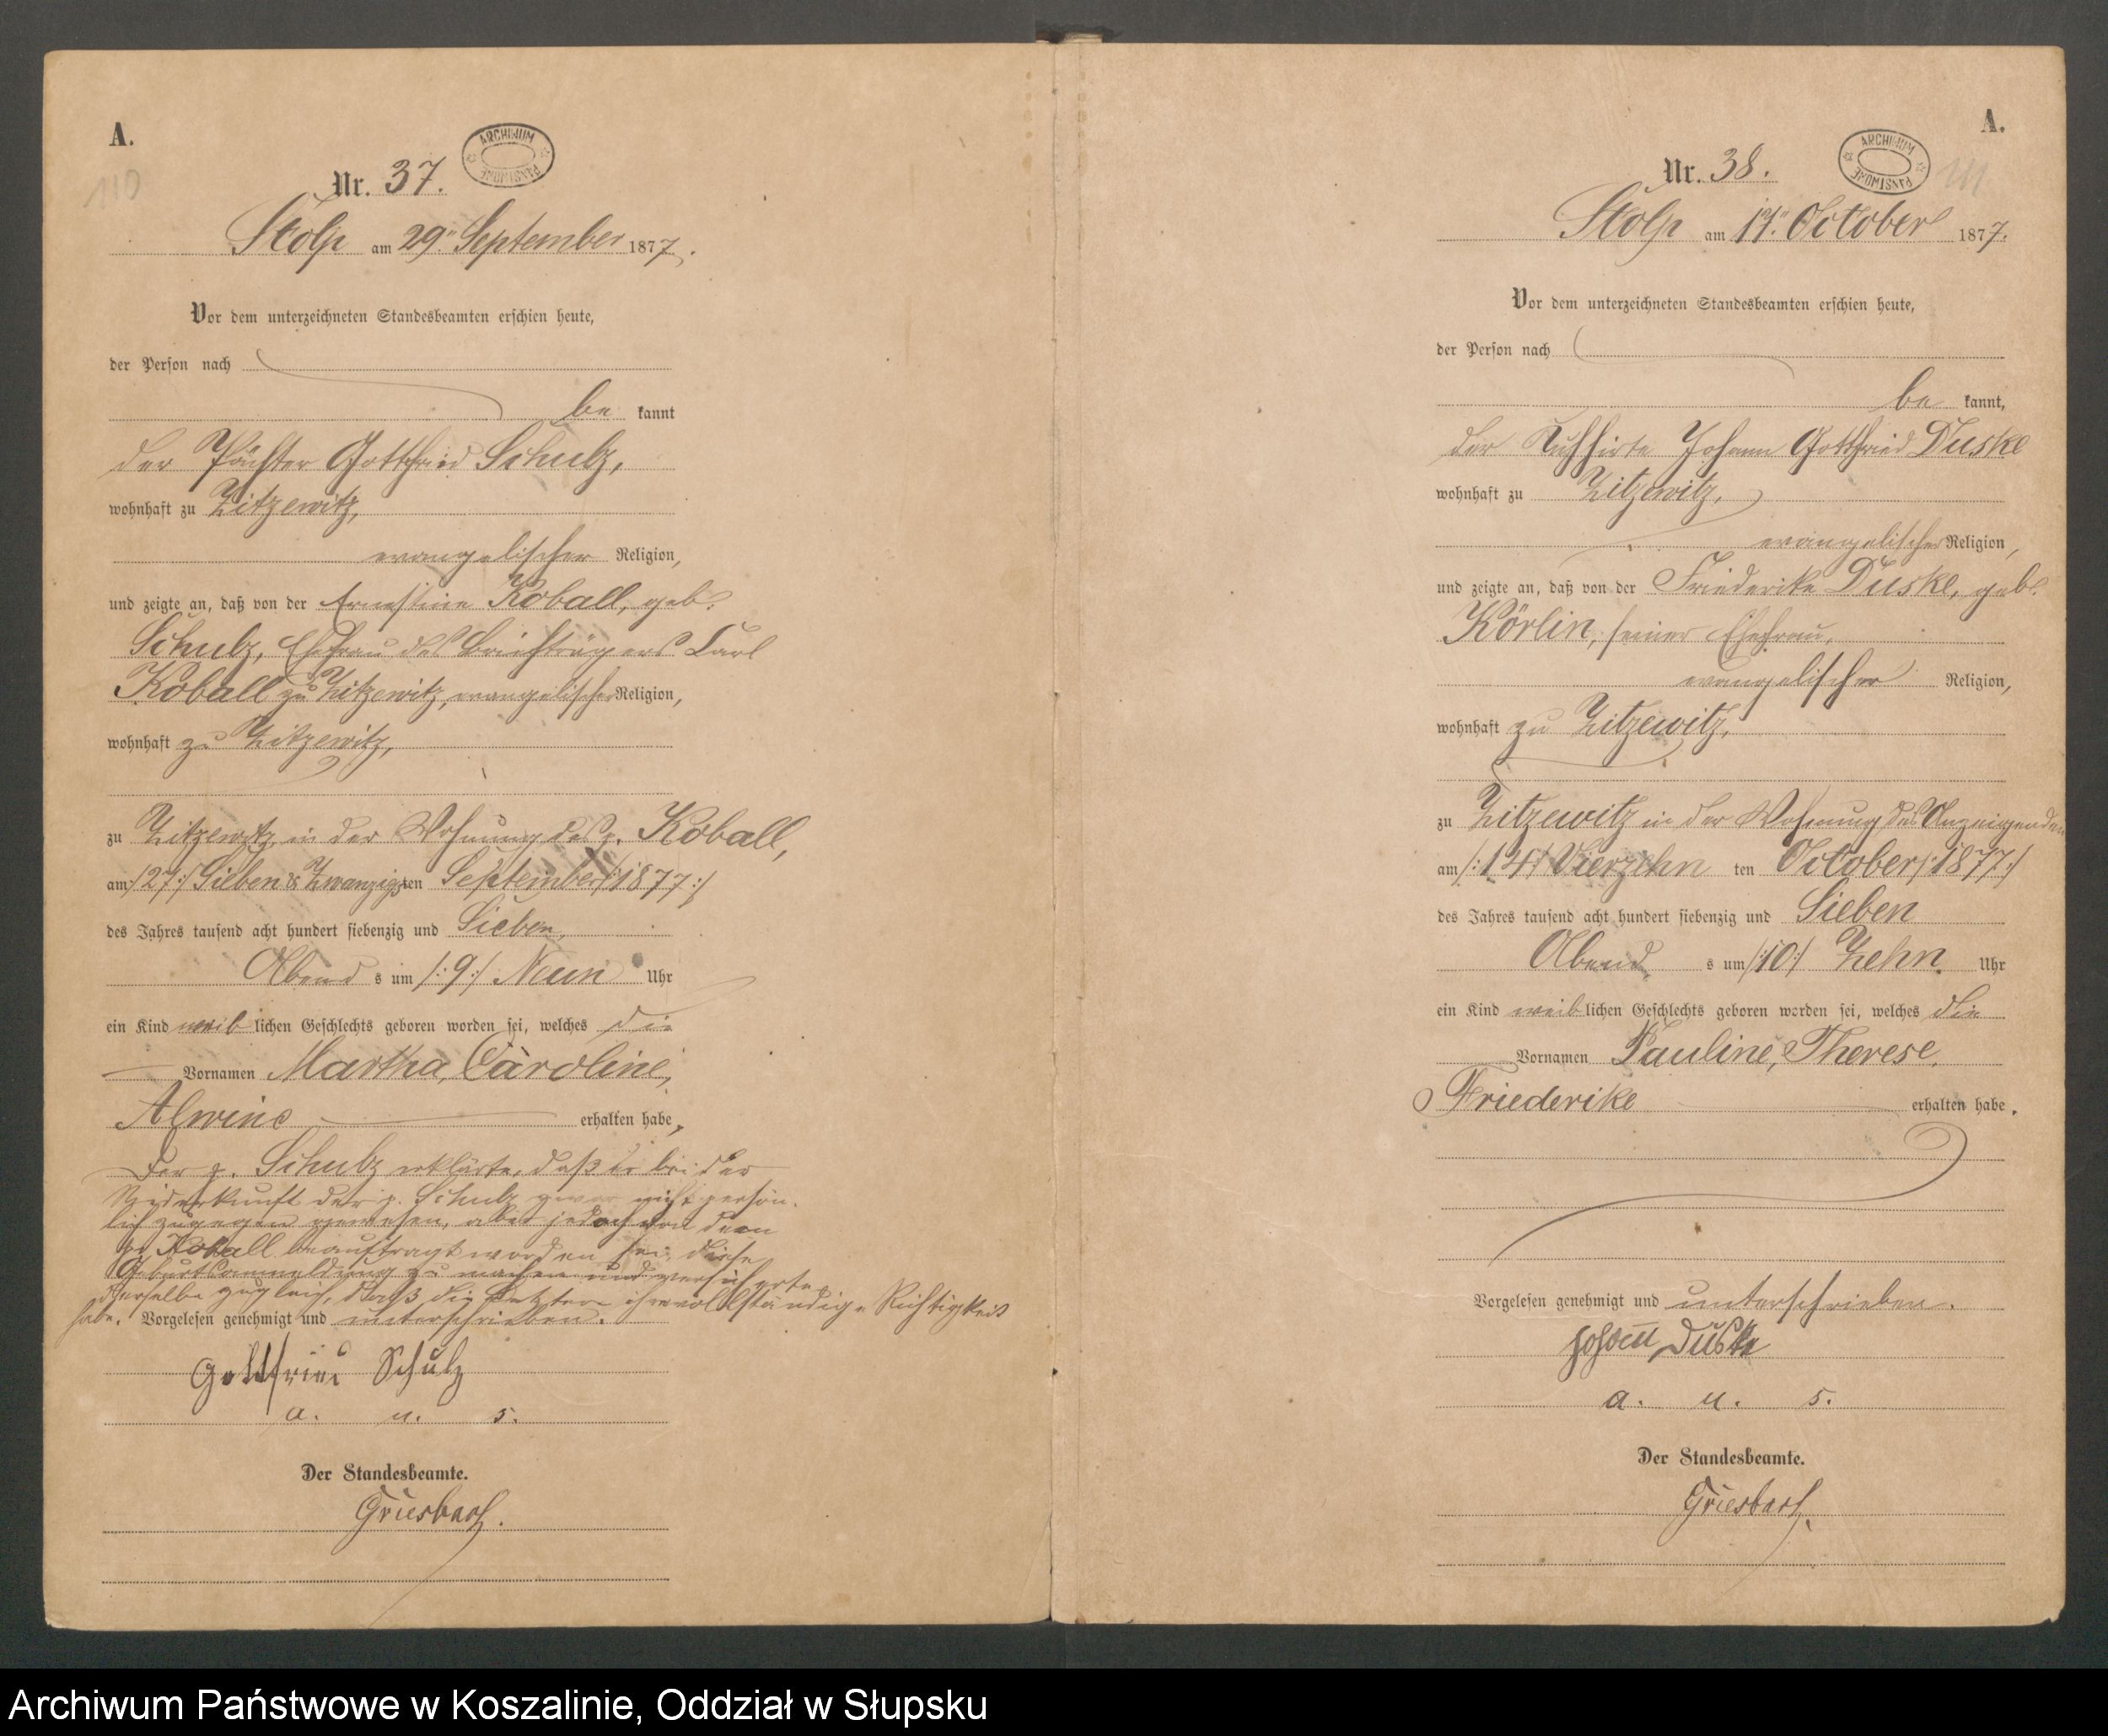 A.
110
ARCHIWUM PAŃSTWOWE
Nr. 37.
Stolp am 29. September 1877.
Vor dem unterzeichneten Standesbeamten erschien heute,
der Person nach
be kannt
der Pächter Gottfried Schulz,
wohnhaft zu Zitzewitz,
evangelischer Religion,
und zeigte an, daß von der Ernestine Koball, geb.
Schulz, Ehefrau des Briefträgers Carl
Koball zu Zitzewitz, evangelischer Religion,
wohnhaft zu Zitzewitz,
zu Zitzewitz in der Wohnung des p. Koball,
am /:27:/ Sieben & Zwanzigsten September /:1877:/
des Jahres tausend acht hundert siebenzig und Sieben,
Abend s um /:9:/ Neun Uhr
ein Kind weib lichen Geschlechts geboren worden sei, welches die
Vornamen Martha, Caroline,
Alwine erhalten habe,
Der p. Schulz erklärte, daß er bei der
Niederkunft der p. Schulz zwar nicht persön-
lich zugegen gewesen, aber jedoch von dem
p. Koball beauftragt worden sei, diese
Geburtsanmeldung zu machen und versicherte
derselbe zugleich, daß die Letztere ihre vollständige Richtigkeit
habe. Vorgelesen genehmigt und unterschrieben.
Gottfried Schulz
a. u. s.
Der Standesbeamte.
Griesbach.
A.
111
ARCHIWUM PAŃSTWOWE
Nr. 38.
Stolp am 17. October 1877.
Vor dem unterzeichneten Standesbeamten erschien heute,
der Person nach
be kannt,
der Kuhhirte Johann Gottfried Duske
wohnhaft zu Zitzewitz,
evangelischer Religion,
und zeigte an, daß von der Friederike Duske, geb.
Körlin, seiner Ehefrau,
evangelischer Religion,
wohnhaft zu Zitzewitz,
zu Zitzewitz in der Wohnung des Anzeigenden
am /:14:/ Vierzehn ten October /:1877:/
des Jahres tausend acht hundert siebenzig und Sieben
Abend s um /:10:/ Zehn Uhr
ein Kind weib lichen Geschlechts geboren worden sei, welches die
Vornamen Pauline, Therese,
Friederike erhalten habe.
Vorgelesen genehmigt und unterschrieben.
Johann Duske
a. u. s.
Der Standesbeamte.
Griesbach.
Archiwum Państwowe w Koszalinie, Oddział w Słupsku